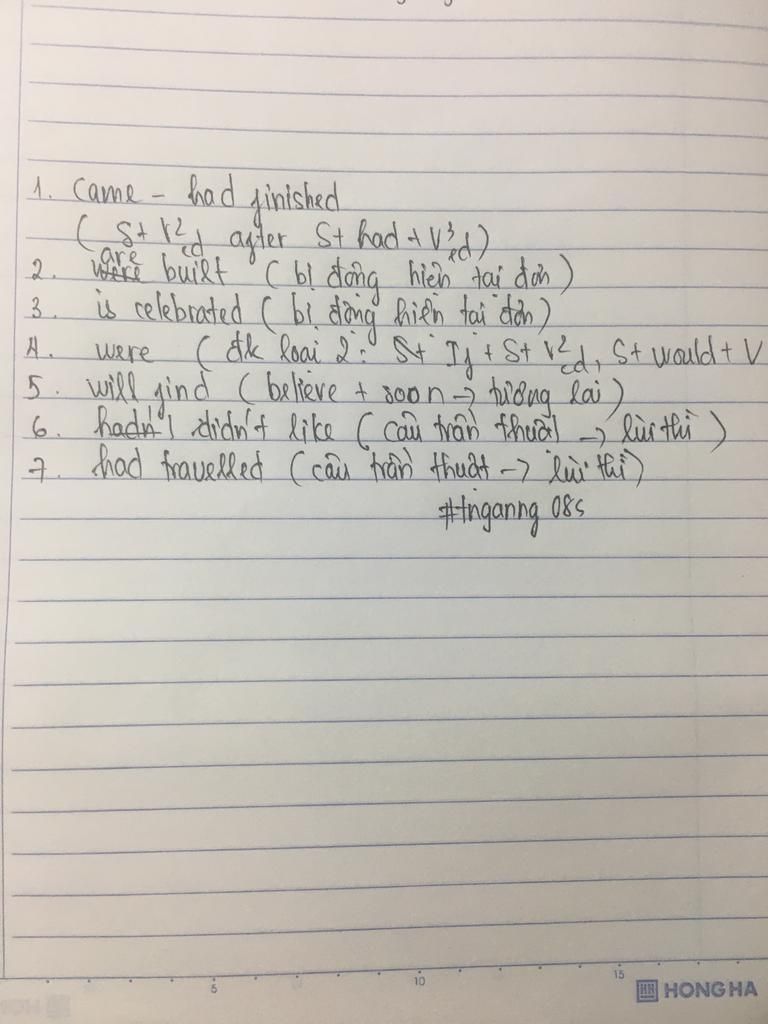 1. Came - had finished
( S + V2/ed after S + had + V3/ed )
2. were are built ( bị động hiện tại đơn )
3. is celebrated ( bị động hiện tại đơn )
4. were ( đk loại 2 : S + If + S + V2/ed, S + would + V
5. will find ( believe + soon → tương lai )
6. hadn't didn't like ( câu trần thuật → lùi thì )
7. had travelled ( câu trần thuật → lùi thì )
#tnganng 08s
5 10 15
HH HONG HA